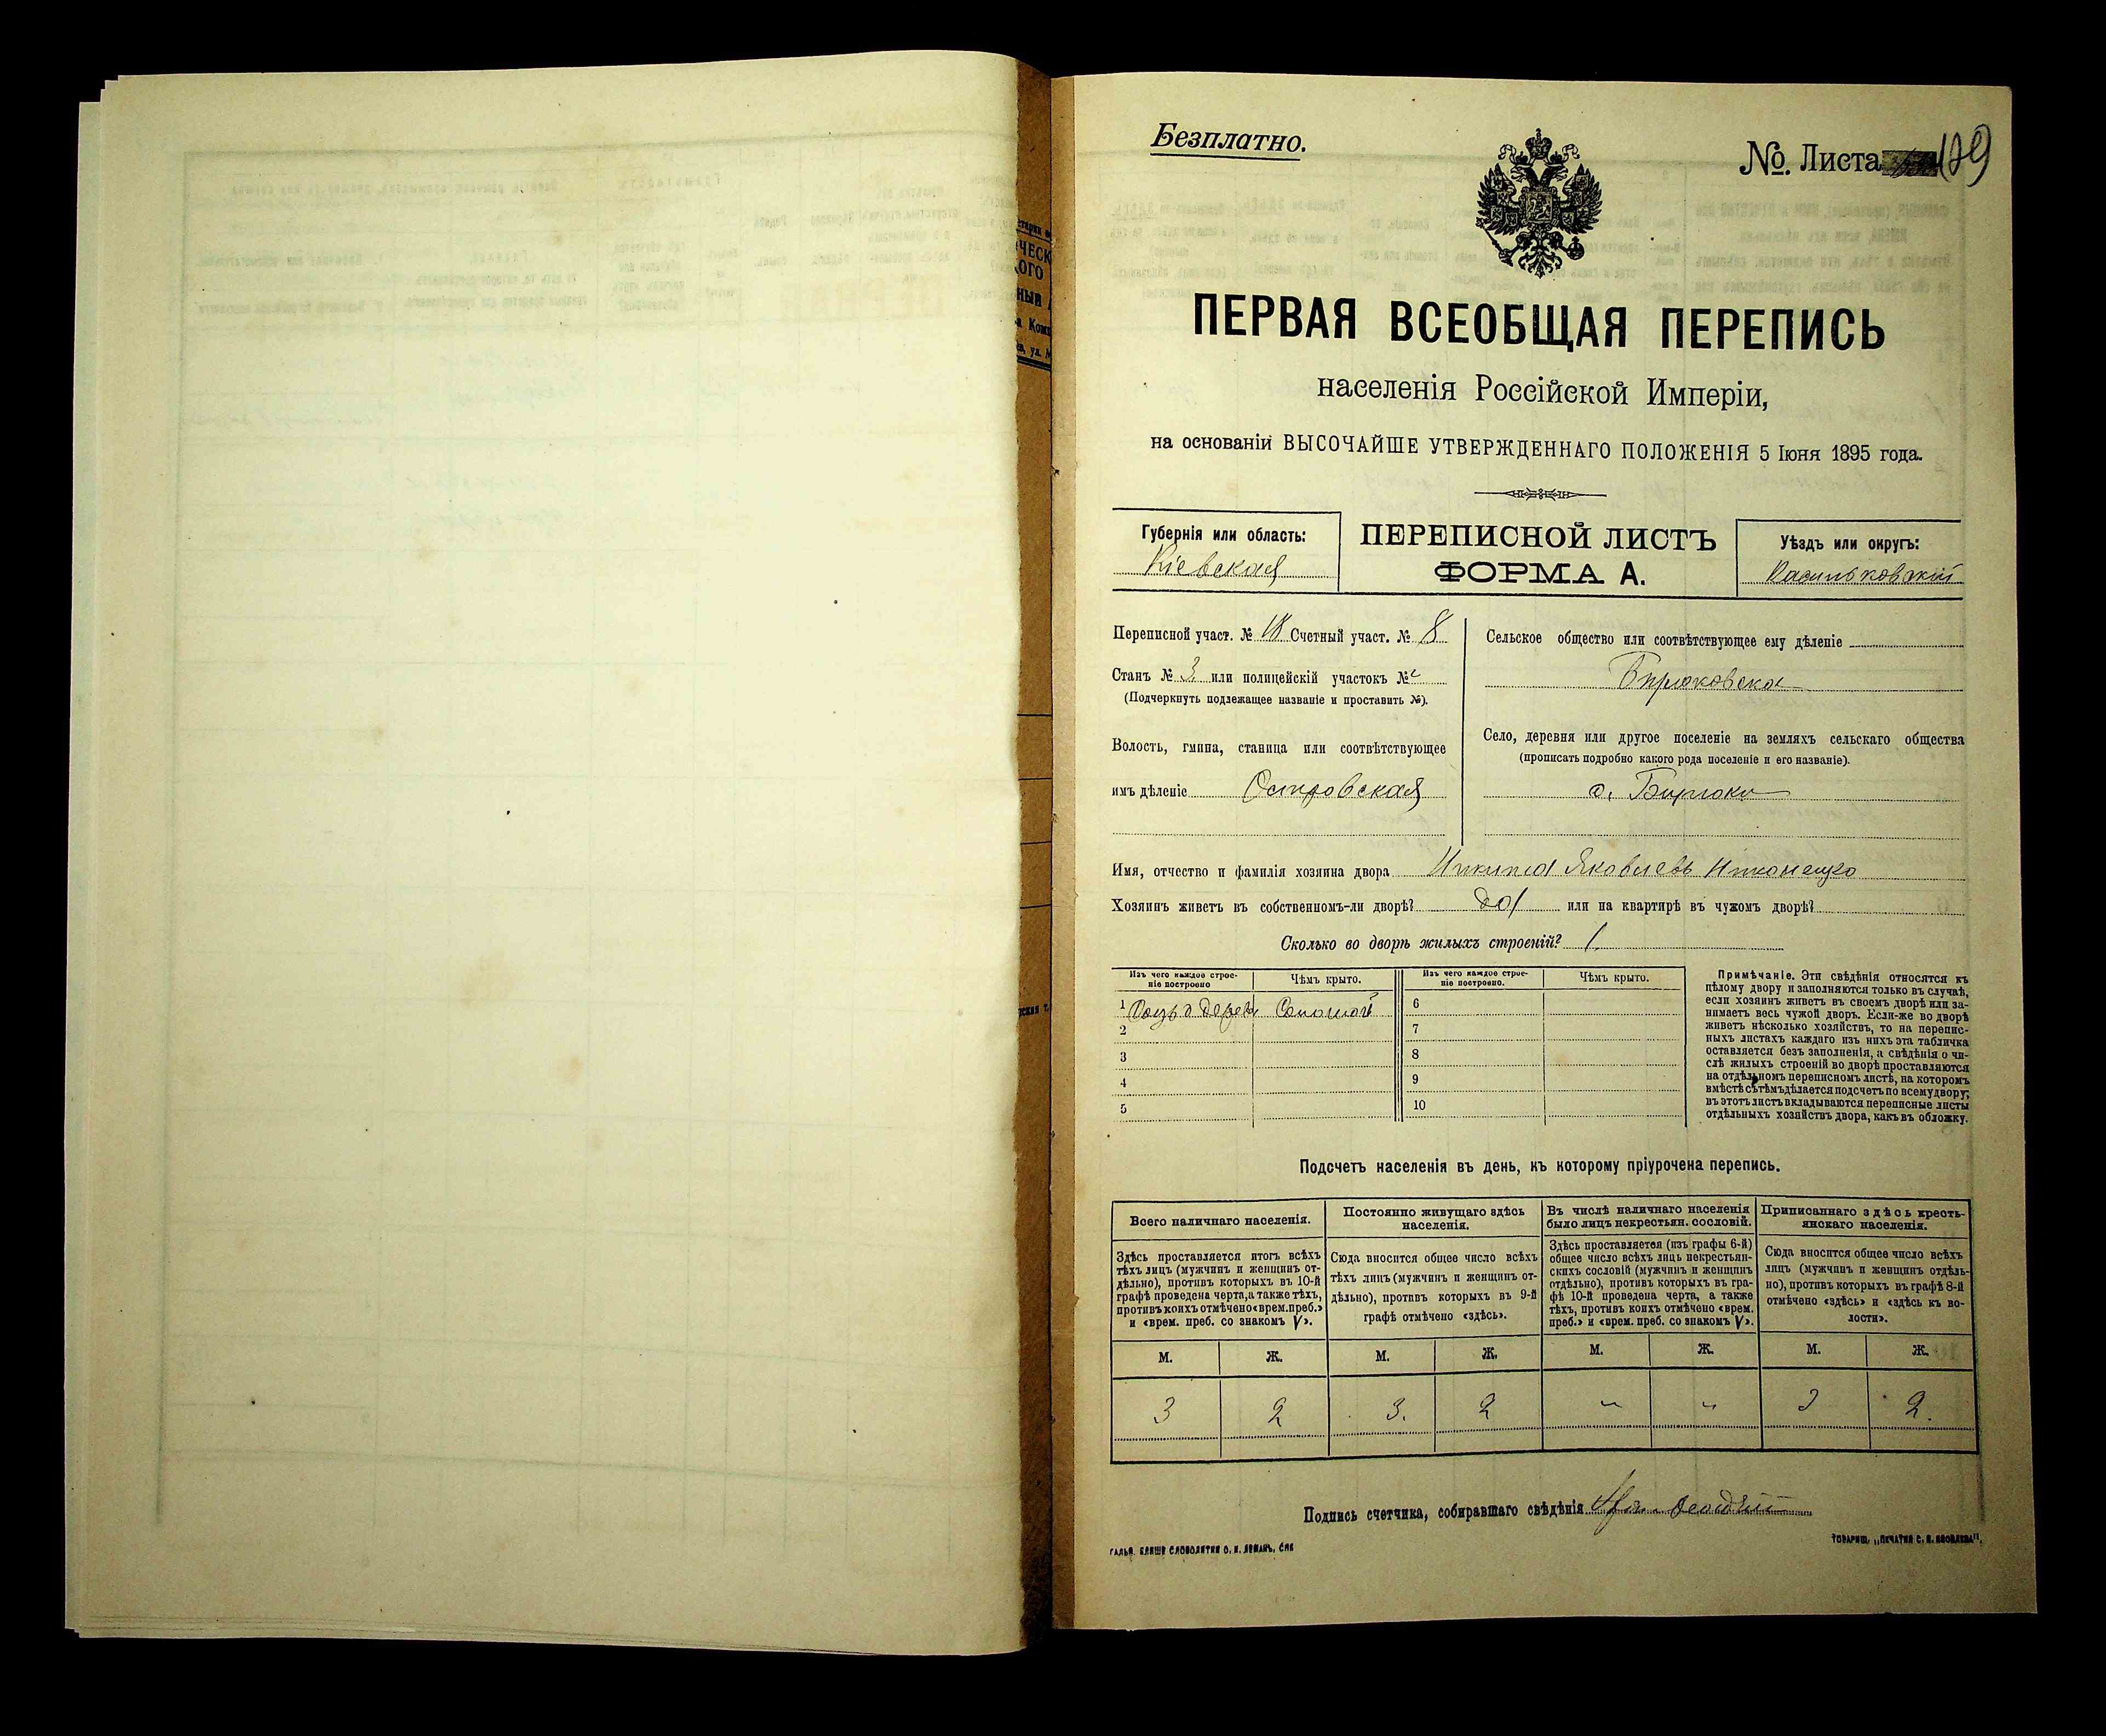 Безплатно.
№ Листа 109
ПЕРВАЯ ВСЕОБЩАЯ ПЕРЕПИСЬ
населенія Россійской Имперіи,
на основаніи ВЫСОЧАЙШЕ УТВЕРЖДЕННАГО ПОЛОЖЕНІЯ 5 Іюня 1895 года.
Губернія или область:
Кіевская
ПЕРЕПИСНОЙ ЛИСТЪ
ФОРМА А.
Уѣздъ или округъ:
Васильковскій
Переписной участ. № 18 Счетный участ. № 8
Станъ № 3 или полицейскій участокъ №
(Подчеркнуть подлежащее названіе и проставить №).
Волость, гмина, станица или соотвѣтствующее
имъ дѣленіе Островская
Сельское общество или соотвѣтствующее ему дѣленіе
Бирюковское
Село, деревня или другое поселеніе на земляхъ сельскаго общества
(прописать подробно какого рода поселеніе и его названіе).
с. Бирюки
Имя, отчество и фамилія хозяина двора Никита Яковлевъ
Хозяинъ живетъ въ собственномъ-ли дворѣ? да или на квартирѣ въ чужомъ дворѣ?
Сколько во дворѣ жилыхъ строеній? 1.
Изъ чего каждое строе-
ніе построено
Чѣмъ крыто.
Изъ чего каждое строе-
ніе построено.
Чѣмъ крыто.
1 Изъ дерева Соломой
2
3
4
5
6
7
8
9
10
Примѣчаніе. Эти свѣдѣнія относятся къ
цѣлому двору и заполняются только въ случаѣ,
если хозяинъ живетъ въ своемъ дворѣ или за-
нимаетъ весь чужой дворъ. Если-же во дворѣ
живетъ нѣсколько хозяйствъ, то на перепис-
ныхъ листахъ каждаго изъ нихъ эта табличка
оставляется безъ заполненія, а свѣдѣнія о чи-
слѣ жилыхъ строеній во дворѣ проставляются
на отдѣльномъ переписномъ листѣ, на которомъ
вмѣстѣ съ тѣмъ дѣлается подсчетъ по всему двору;
въ этотъ листъ вкладываются переписные листы
отдѣльныхъ хозяйствъ двора, какъ въ обложку.
Подсчетъ населенія въ день, къ которому пріурочена перепись.
Всего наличнаго населенія.
Здѣсь проставляется итогъ всѣхъ
тѣхъ лицъ (мужчинъ и женщинъ от-
дѣльно), противъ которыхъ въ 10-й
графѣ проведена черта, а также тѣхъ,
противъ коихъ отмѣчено «врем. преб.»
и «врем. преб. со знакомъ V».
Постоянно живущаго здѣсь
населенія.
Сюда вносится общее число всѣхъ
тѣхъ лицъ (мужчинъ и женщинъ от-
дѣльно), противъ которыхъ въ 9-й
графѣ отмѣчено «здѣсь».
Въ числѣ наличнаго населенія
было лицъ некрестьян. сословій.
Здѣсь проставляется (изъ графы 6-й)
общее число всѣхъ лицъ некрестьян-
скихъ сословій (мужчинъ и женщинъ
отдѣльно), противъ которыхъ въ гра-
фѣ 10-й проведена черта, а также
тѣхъ, противъ коихъ отмѣчено «врем.
преб.» и «врем. преб. со знакомъ V».
Приписаннаго здѣсь кресть-
янскаго населенія.
Сюда вносится общее число всѣхъ
лицъ (мужчинъ и женщинъ отдѣль-
но), противъ которыхъ въ графѣ 8-й
отмѣчено «здѣсь» и «здѣсь къ во-
лости».
М. Ж. М. Ж. М. Ж. М. Ж.
3 2 3. 2 „ „ 3 2.
Подпись счетчика, собиравшаго свѣдѣнія
ГАЛЬВ. КЛИШЕ СЛОВОЛИТНИ О. И. ЛЕМАНЪ, СПБ
ТОВАРИЩ. „ПЕЧАТНИ С. П. ЯКОВЛЕВА".